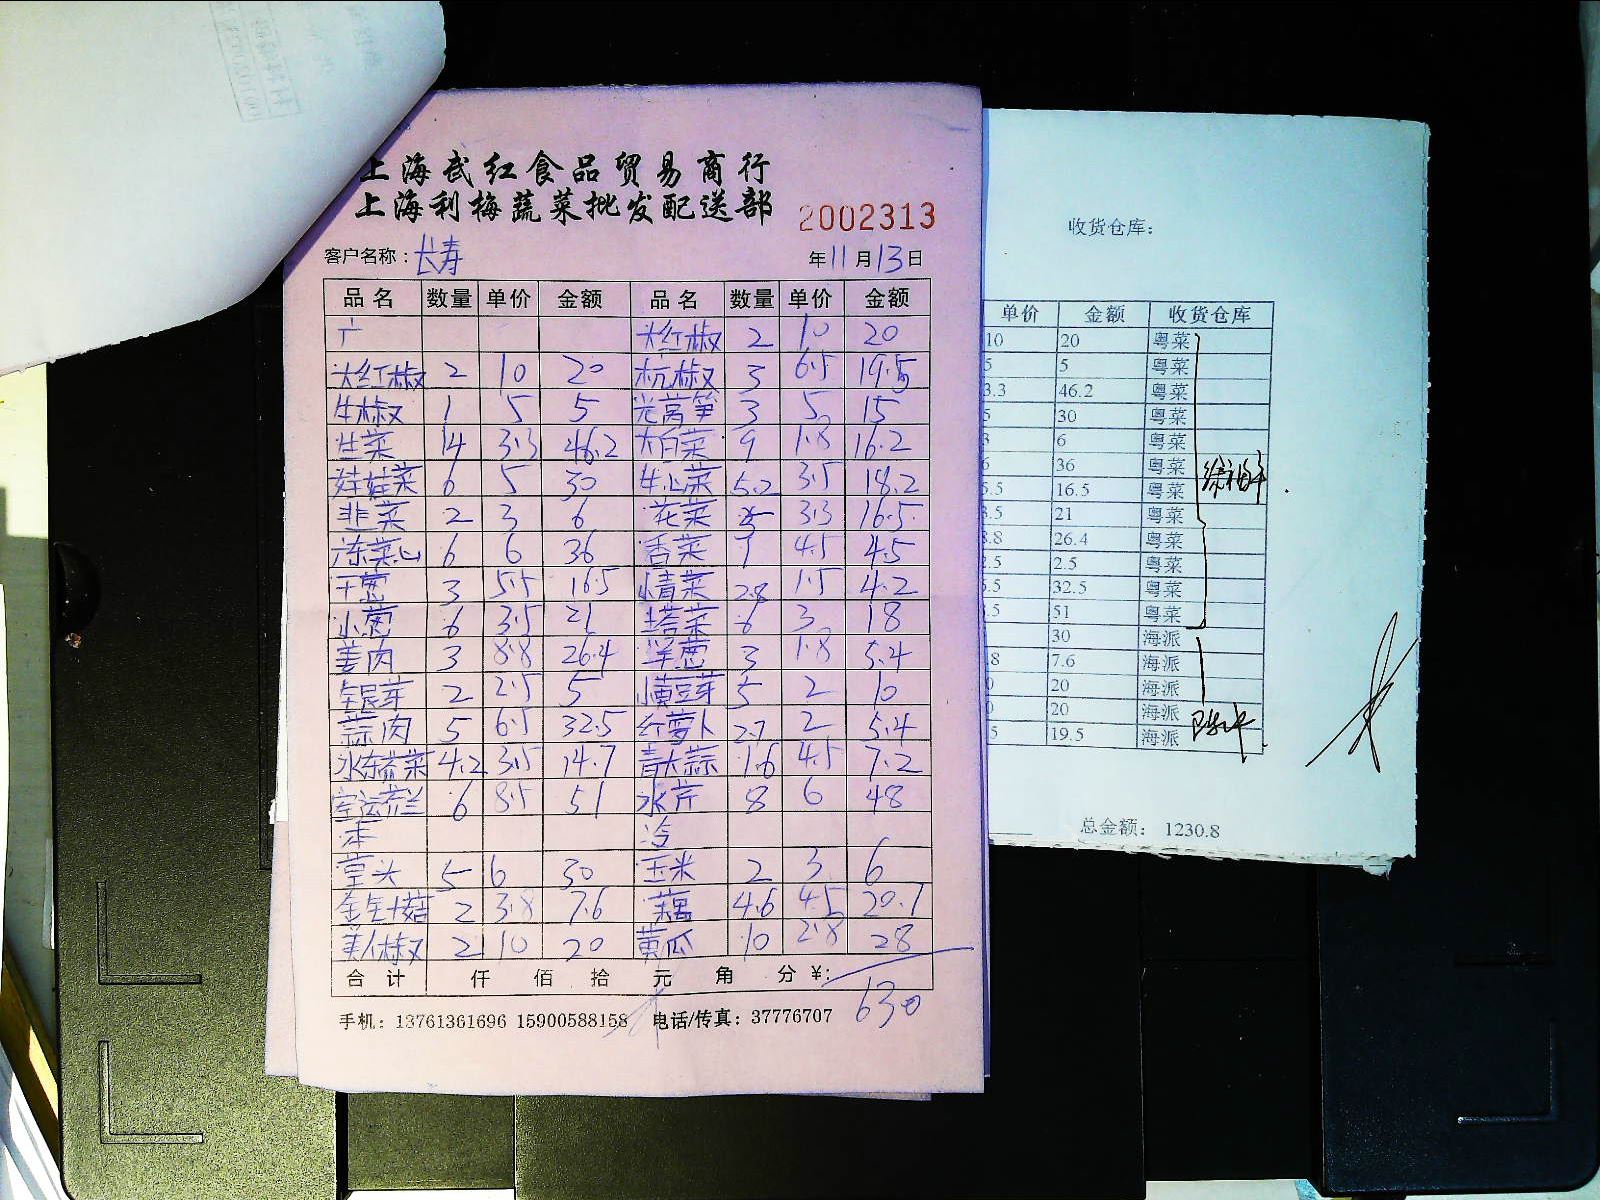 上海武红食品贸易商行
上海利梅蔬菜批发配送部
2002313
客户名称：长寿 年11月13日
品名 数量 单价 金额 品名 数量 单价 金额
广 大红椒 2 10 20
大红椒 2 10 20 杭椒 3 6.5 19.5
牛椒 1 5 5 光莴笋 3 5 15
生菜 14 3.3 46.2 大白菜 9 1.8 16.2
娃娃菜 6 5 30 牛心菜 5.2 3.5 18.2
韭菜 2 3 6 花菜 5 3.3 16.5
冻菜心 6 6 36 香菜 1 4.5 4.5
干葱 3 5.5 16.5 青菜 2.8 1.5 4.2
小葱 6 3.5 21 塔菜 6 3 18
姜肉 3 8.8 26.4 洋葱 3 1.8 5.4
银芽 2 2.5 5 黄豆芽 5 2 10
蒜肉 5 6.5 32.5 红萝卜 2.7 2 5.4
水东芥菜 4.2 3.5 14.7 青大蒜 1.6 4.5 7.2
空运芥兰 6 8.5 51 水芹 8 6 48
本 冷
草头 5 6 30 玉米 2 3 6
金针菇 2 3.8 7.6 藕 4.6 4.5 20.7
美人椒 2 10 20 黄瓜 10 2.8 28
合计 仟 佰 拾 元 角 分 ¥:
630
手机：13761361696 15900588158 电话/传真：37776707
收货仓库：
单价 金额 收货仓库
10 20 粤菜
5 5 粤菜
3.3 46.2 粤菜
5 30 粤菜
3 6 粤菜
6 36 粤菜
5.5 16.5 粤菜
3.5 21 粤菜
8.8 26.4 粤菜
2.5 2.5 粤菜
6.5 32.5 粤菜
.5 51 粤菜
30 海派
.8 7.6 海派
0 20 海派
0 20 海派
.5 19.5 海派
总金额： 1230.8